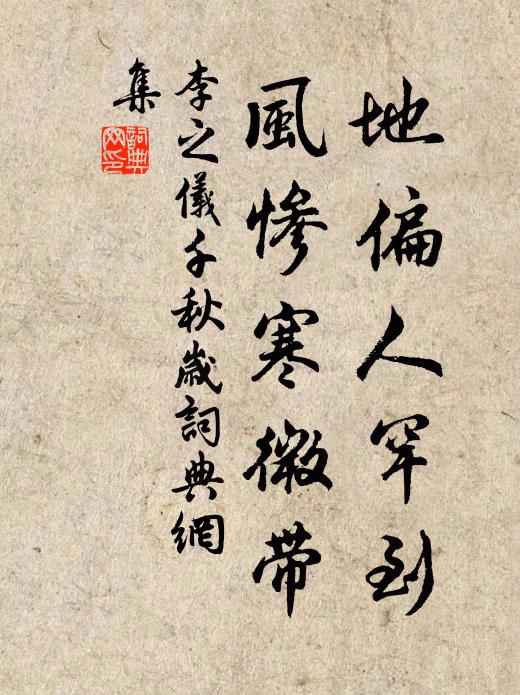 地偏人罕到
風惨寒微带
李之儀千秋歲詞典網
集
詞典
网印